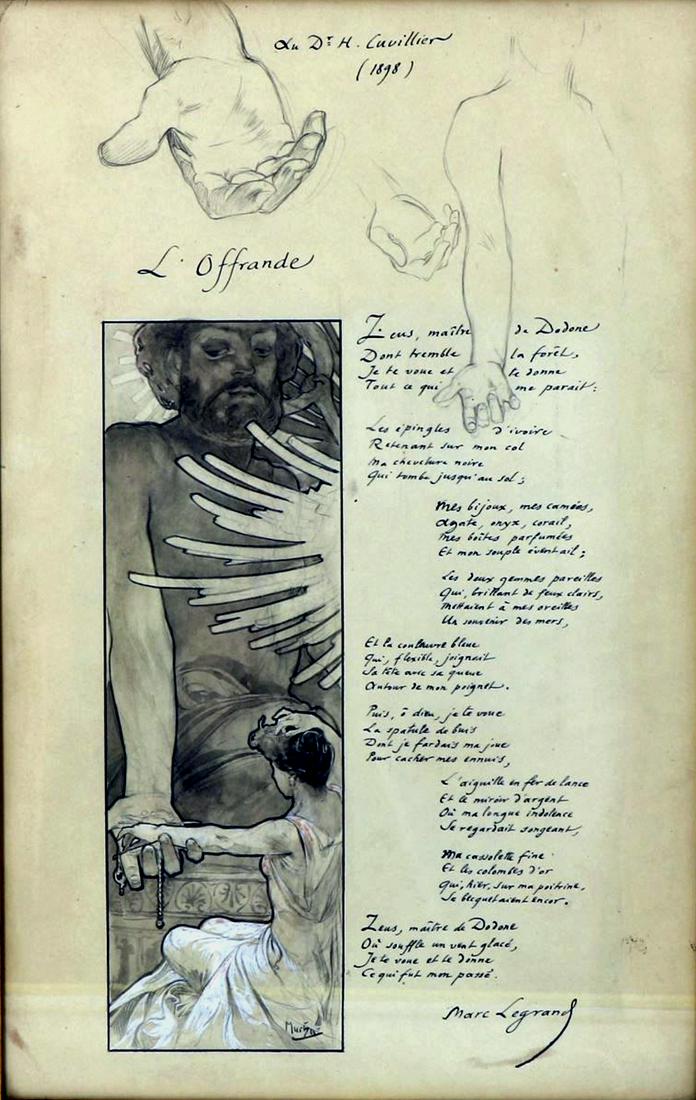 Au Dr H. Cuvillier
(1898)
L'Offrande
Zeus, maître de Dodone
Dont tremble la forêt,
Je te voue et te donne
Tout ce qui me parait :
Les épingles d'ivoire
Retenant sur mon col
Ma chevelure noire
Qui tombe jusqu'au sol ;
Mes bijoux, mes camées,
Agate, onyx, corail,
Mes boîtes parfumées
Et mon souple éventail ;
Les deux gemmes pareilles
Qui, brillant de feux clairs,
Mettaient à mes oreilles
Un souvenir des mers,
Et la couleuvre bleue
Qui, flexible, joignait
Sa tête avec sa queue
Autour de mon poignet.
Puis, ô dieu, je te voue
La spatule de buis
Dont je fardais ma joue
Pour cacher mes ennuis,
L'aiguille en fer de lance
Et le miroir d'argent
Où ma longue indolence
Se regardait songeant,
Ma cassolette fine
Et les colombes d'or
Qui, hier, sur ma poitrine,
Se becquetaient encor.
Zeus, maître de Dodone
Où souffle un vent glacé,
Je te voue et te donne
Ce qui fut mon passé.
Marc Legrand
Mucha